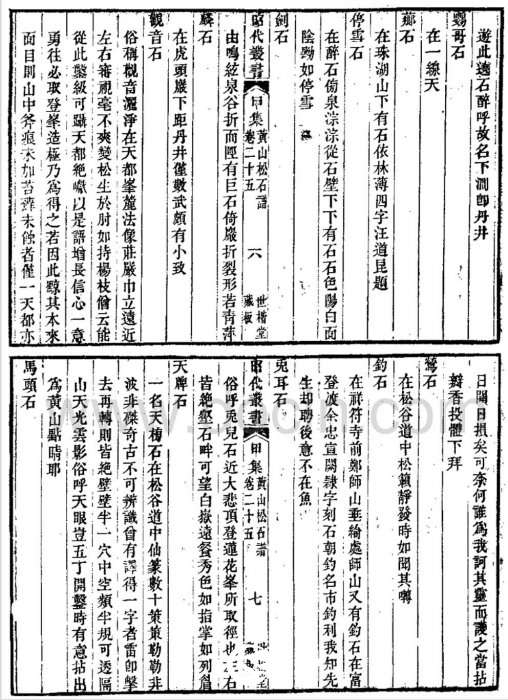 遊此遶石醉呼故名下澗卽丹井
鸚哥石
在一線天
薌石
在珠湖山下有石依林薄四字汪道昆題
停雪石
在醉石傍泉淙淙從石壁下下有石石色陽白面
陰黝如停雪
劍石
昭代叢書
甲集
黃山松石譜
卷二十五
六
世楷堂
藏板
由鳴絃泉谷折而陘有巨石倚巖折裂形若靑萍
麟石
在虎頭巖下距丹井僅數武頗有小致
觀音石
俗稱觀音灑淨在天都峯麓法像莊嚴巾立遠近
左右審視毫不爽變松生於肘如持楊枝僧云能
從此鑿級可躡天都絶巘以是語增長信心一意
勇往必取登峯造極乃爲得之若因此黥其本來
面目則山中斧痕未加苔蘚未蝕者僅一天都亦
日闢日損矣可奈何誰爲我訶其靈而護之當拈
瓣香投體下拜
鶯石
在松谷道中松籟靜發時如聞其囀
釣石
在祥符寺前鄭師山垂綸處師山又有釣石在富
登波余忠宣闕隸字刻石朝釣名市釣利我知先
生却聘後意不在魚
兎耳石
昭代叢書
甲集
黃山松石譜
卷二十五
七
俗呼兎兒石近大悲頂登蓮花峯所取徑也三石
皆絶壑石畔可望白嶽遠餐秀色如指掌如列眉
天牌石
一名天榜石在松谷道中仙篆數十策策勒勒非
波非磔奇古不可辨識曾有譯得一字者雷卽擊
去再轉則皆絶壁壁半一穴中空頻半規可透隔
山天光雲影俗呼天眼豈五丁開鑿時有意拈出
爲黃山點睛耶
馬頭石